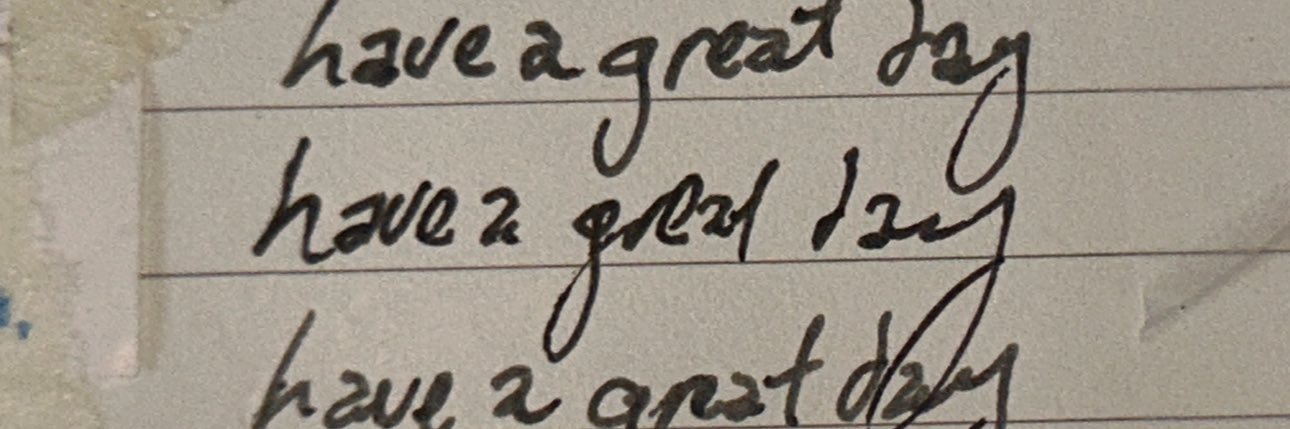 have a great day
have a great day
have a great day